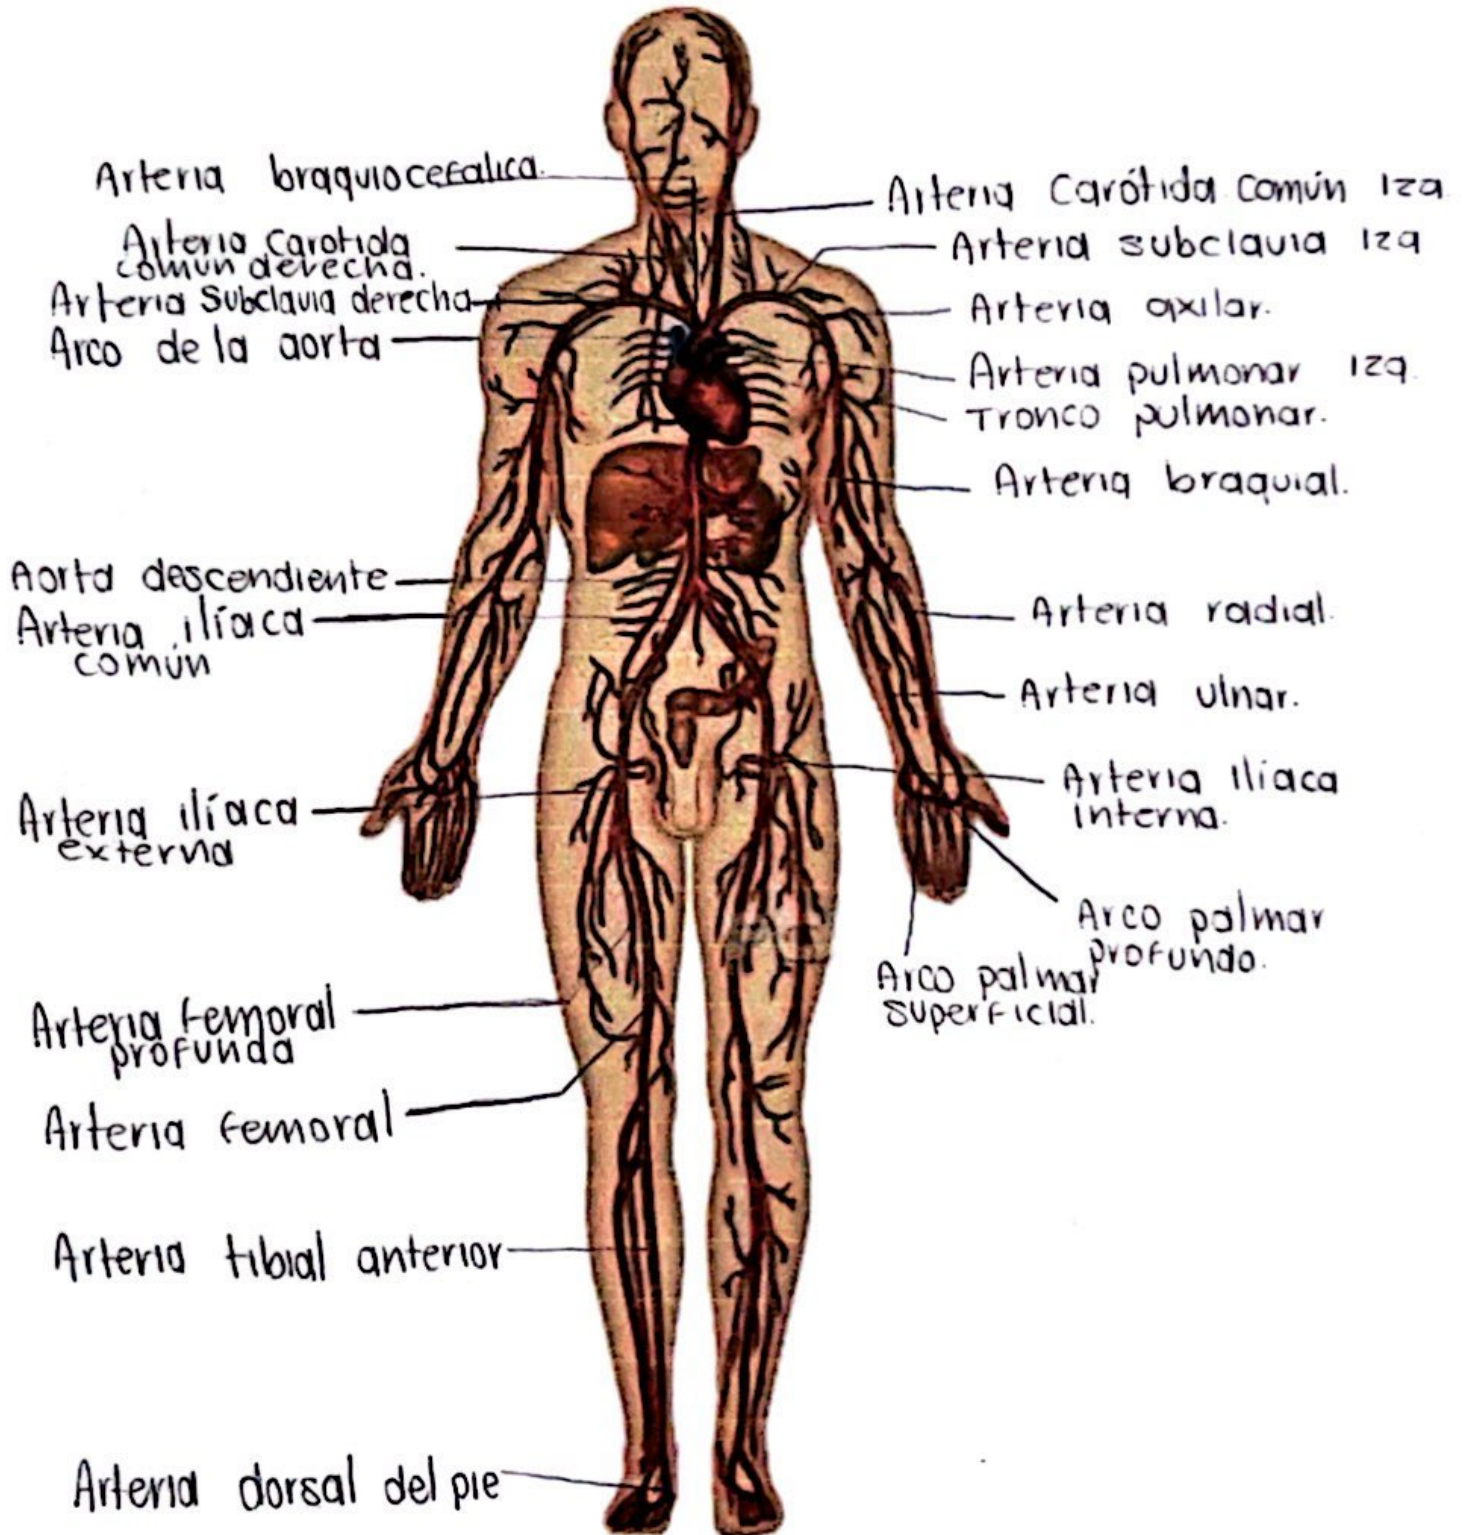 Arteria braquiocefalica.
Arteria carotida
común derecha.
Arteria Subclavia derecha
Arco de la aorta
Aorta descendiente
Arteria ilíaca
común
Arteria ilíaca
externa
Arteria femoral
profunda
Arteria femoral
Arteria tibial anterior
Arteria dorsal del pie
Arteria Carótida común izq
Arteria subclavia izq
Arteria axilar.
Arteria pulmonar izq.
Tronco pulmonar.
Arteria braquial.
Arteria radial.
Arteria ulnar.
Arteria Ilíaca
interna.
Arco palmar
profundo.
Arco palmar
superficial.